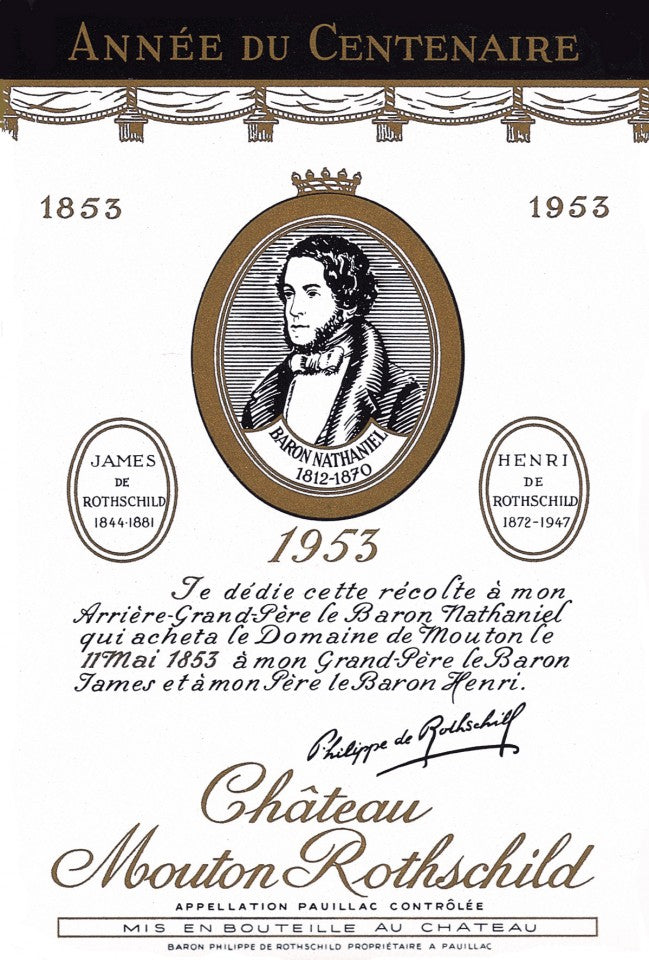 ANNÉE DU CENTENAIRE
1853
1953
BARON NATHANIEL
1812-1870
JAMES
DE
ROTHSCHILD
1844-1881
HENRI
DE
ROTHSCHILD
1872-1947
1953
Je dédie cette récolte à mon
Arrière-Grand-Père le Baron Nathaniel
qui acheta le Domaine de Mouton le
11 Mai 1853 à mon Grand-Père le Baron
James et à mon Père le Baron Henri.
Philippe de Rothschild
Château
Mouton Rothschild
APPELLATION PAUILLAC CONTRÔLÉE
MIS EN BOUTEILLE AU CHATEAU
BARON PHILIPPE DE ROTHSCHILD PROPRIÉTAIRE A PAUILLAC